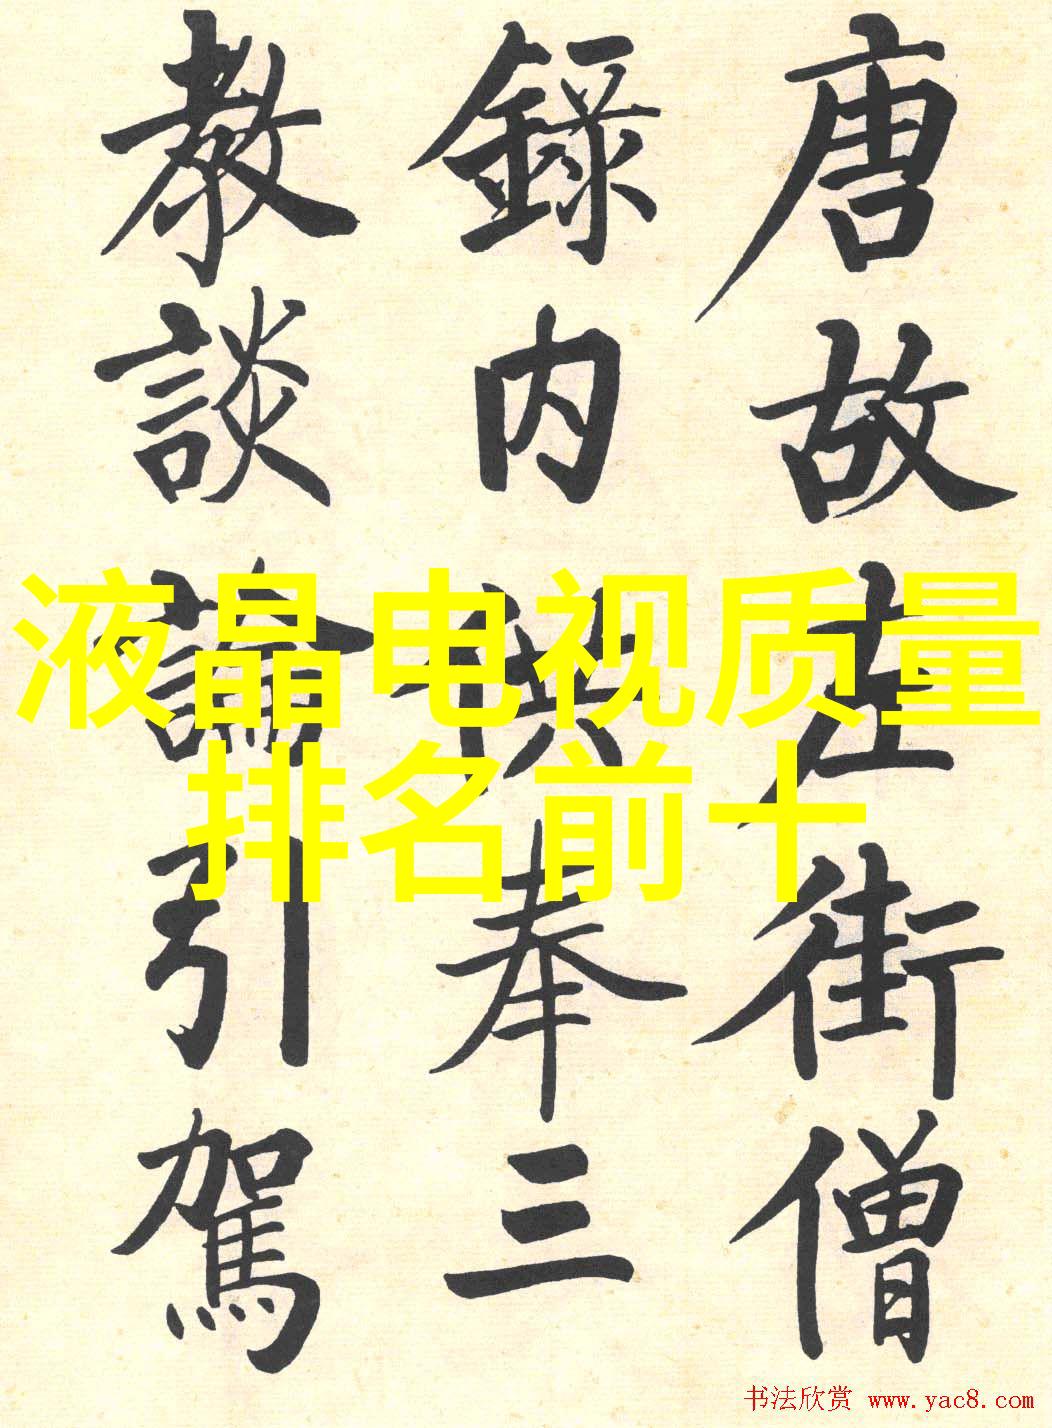 唐故左街僧
錄内供奉三
教談論引駕
液晶电视质量
排名前十
书法欣赏 www.yac8.com